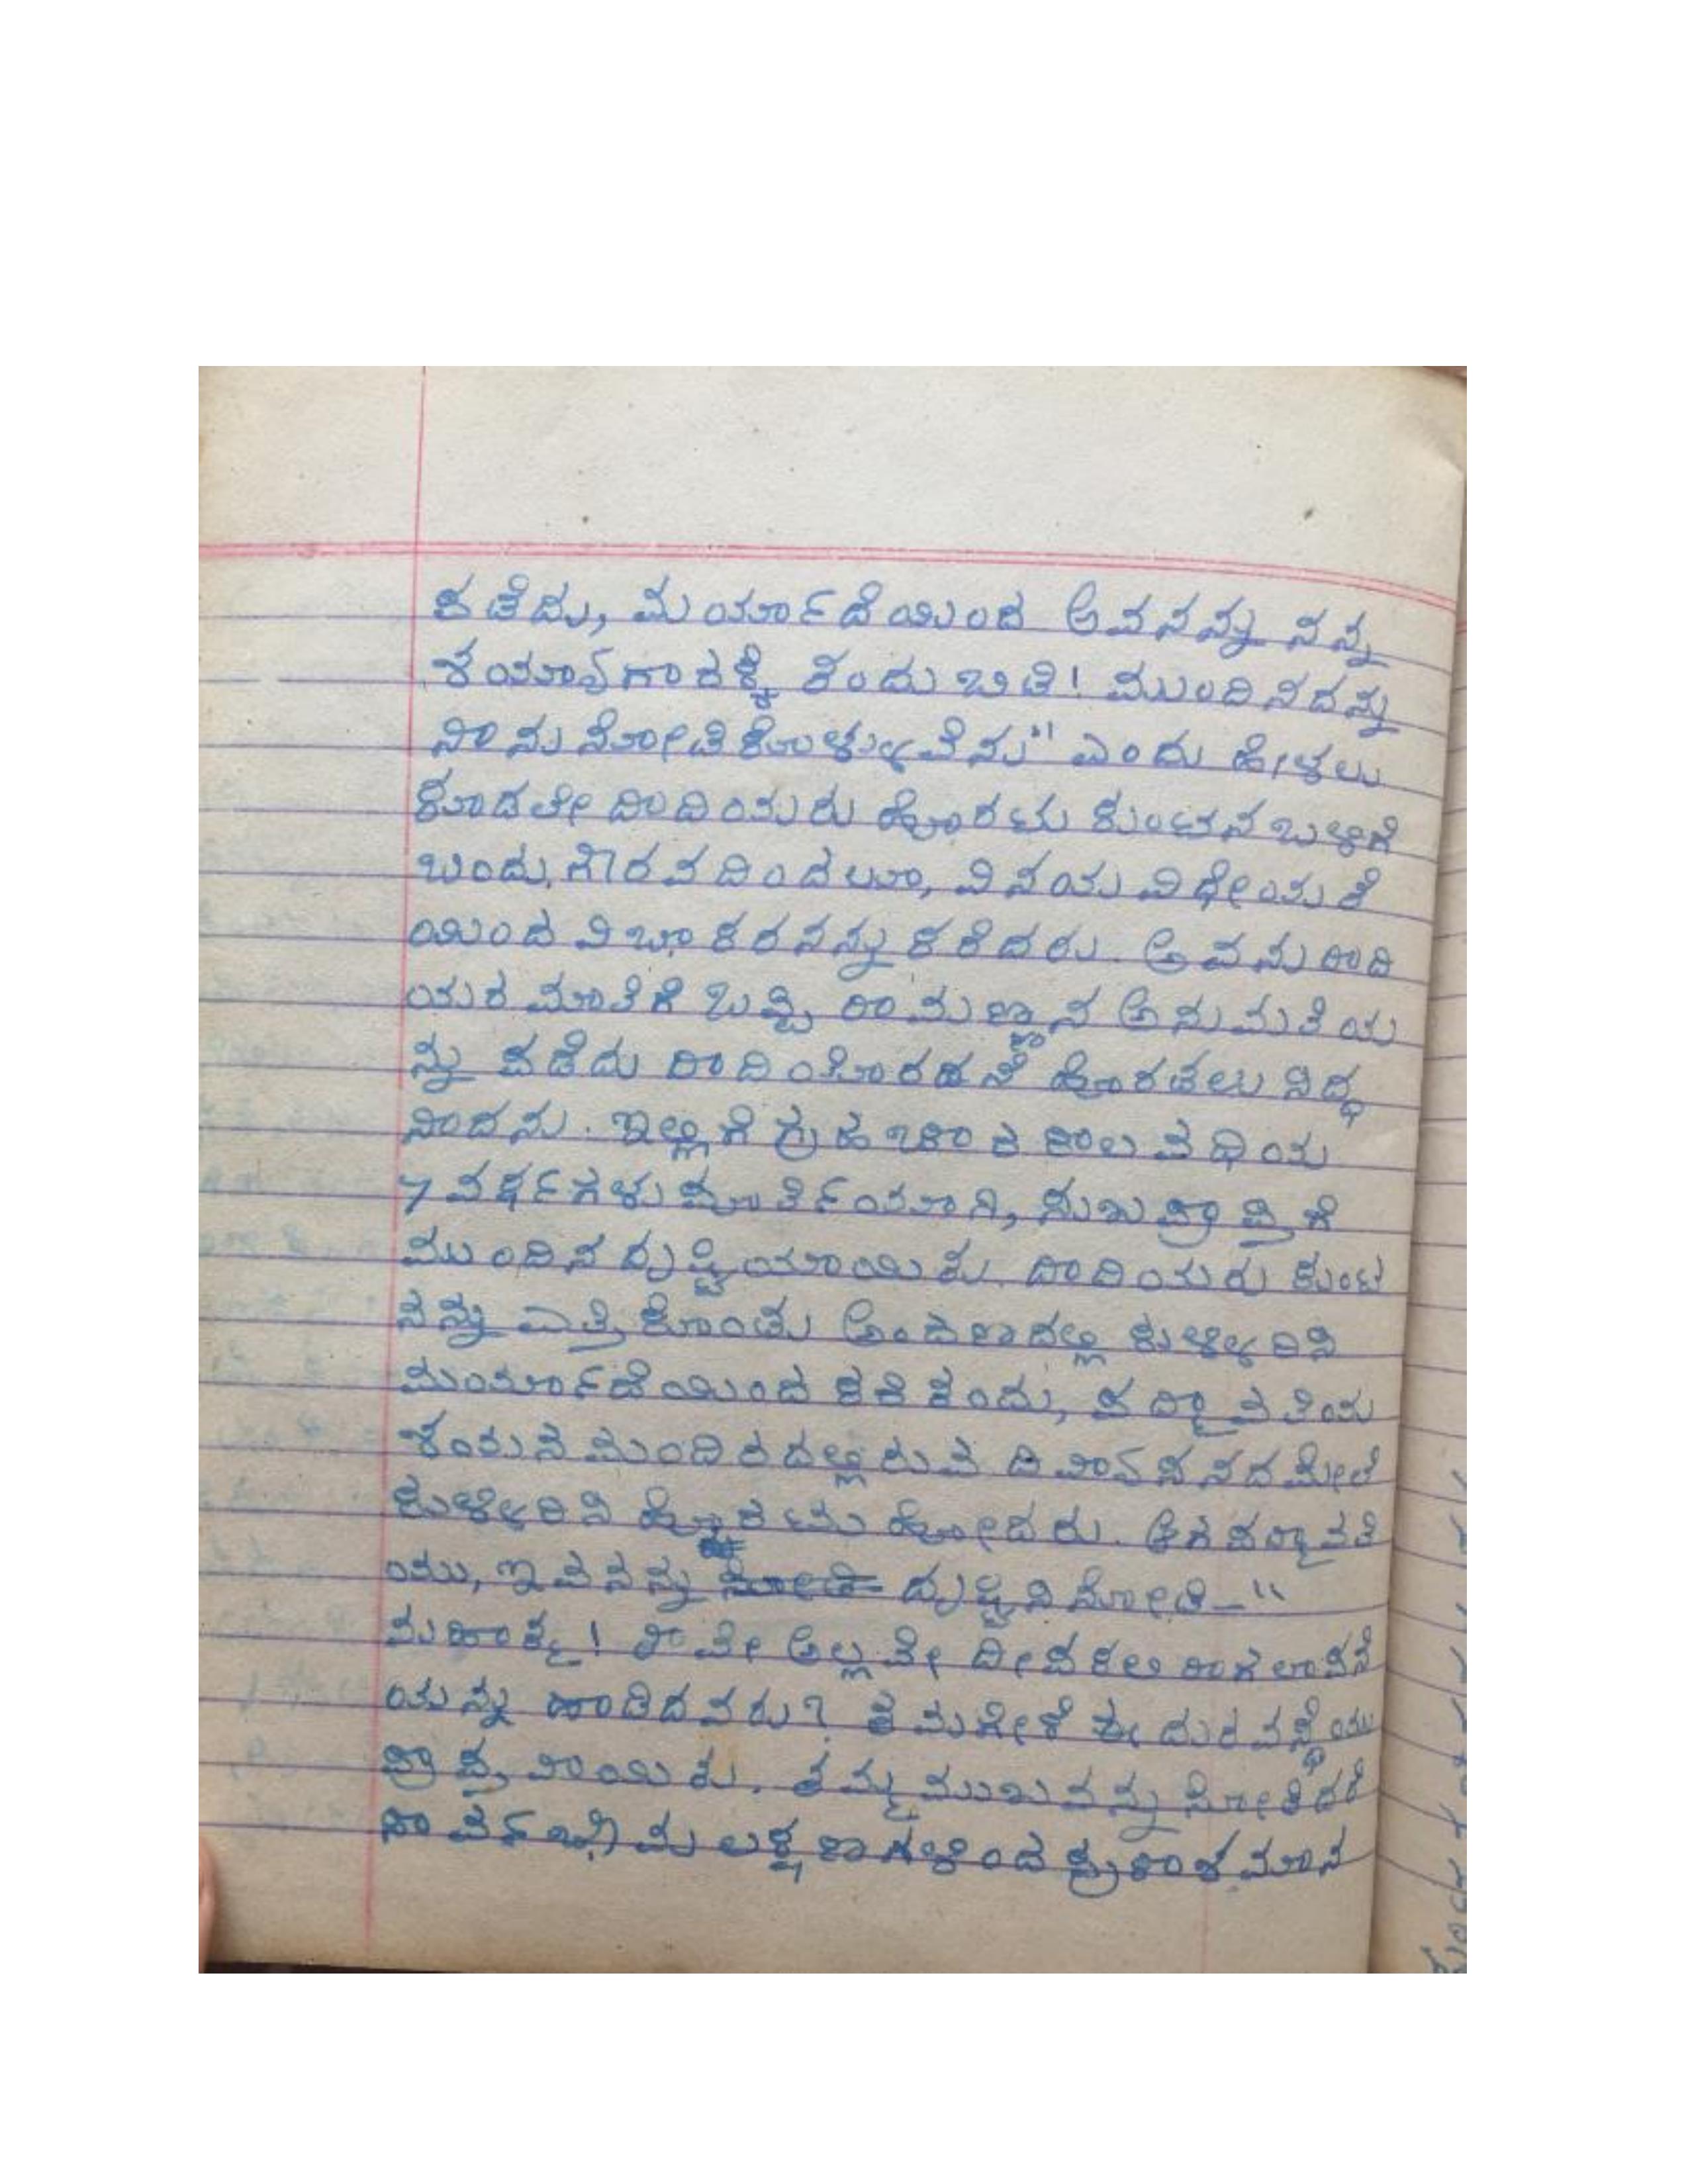 ಕಡೆದು, ಮರ್ಯಾದೆಯಿಂದ ಅವನನ್ನು ನನ್ನ
ಶಯ್ಯಾಗಾರಕ್ಕೆ ತಂದು ಬಿಡಿ! ಮುಂದಿನದನ್ನು
ನಾನು ನೋಡಿಕೊಳ್ಳುವೆನು" ಎಂದು ಹೇಳಲು
ಕೂಡಲೇ ದಾದಿಯರು ಹೊರಟು ಕುಂಟನ ಬಳಿಗೆ
ಬಂದು, ಗೌರವದಿಂದಲೂ, ವಿನಯ ವಿಧೇಯತೆ
ಯಿಂದ ವಿಭಾಕರನನ್ನು ಕರೆದರು. ಅವನು ದಾದಿ
ಯರ ಮಾತಿಗೆ ಒಪ್ಪಿ ರಾಮಣ್ಣನ ಅನುಮತಿಯ
ನ್ನು ಪಡೆದು ದಾದಿಯೋರಡನೆ ಹೊರಡಲು ಸಿದ್ಧ
ನಾದನು. ಇಲ್ಲಿಗೆ ಗ್ರಹಚಾರ ಕಾಲವಧಿಯ
7 ವರ್ಷಗಳು ಪೂರ್ತಿಯಾಗಿ, ಸುಖಪ್ರಾಪ್ತಿಗೆ
ಮುಂದಿನ ದೃಷ್ಟಿಯಾಯಿತು. ದಾದಿಯರು ಕುಂಟ
ನನ್ನು ಎತ್ತಿಕೊಂಡು ಅಂದಣದಲ್ಲಿ ಕುಳ್ಳಿರಿಸಿ
ಮರ್ಯಾದೆಯಿಂದ ಕರೆತಂದು, ಪದ್ಮಾವತಿಯ
ಶಯನ ಮಂದಿರದಲ್ಲಿರುವ ದಿವ್ಯಾಸನದ ಮೇಲೆ
ಕುಳ್ಳಿರಿಸಿ ಹೊರಟು ಹೋದರು. ಆಗ ಪದ್ಮಾವತಿ
ಯು, ಇವನನ್ನು ನೋಡಿ ದೃಷ್ಟಿಸಿ ನೋಡಿ-"
ಮಹಾತ್ಮ! ತಾವೇ ಅಲ್ಲವೇ ದೀಪಕಲ ರಾಗಲಾಪನೆ
ಯನ್ನು ಹಾಡಿದವರು? ತಮಗೇಕೆ ಈ ದುರವಸ್ಥೆಯು
ಪ್ರಾಪ್ತವಾಯಿತು. ತಮ್ಮ ಮುಖವನ್ನು ನೋಡಿದರೆ
ಸಾರ್ವಭೌಮ ಲಕ್ಷಣಗಳಿಂದ ಪ್ರಕಾಶಮಾನ